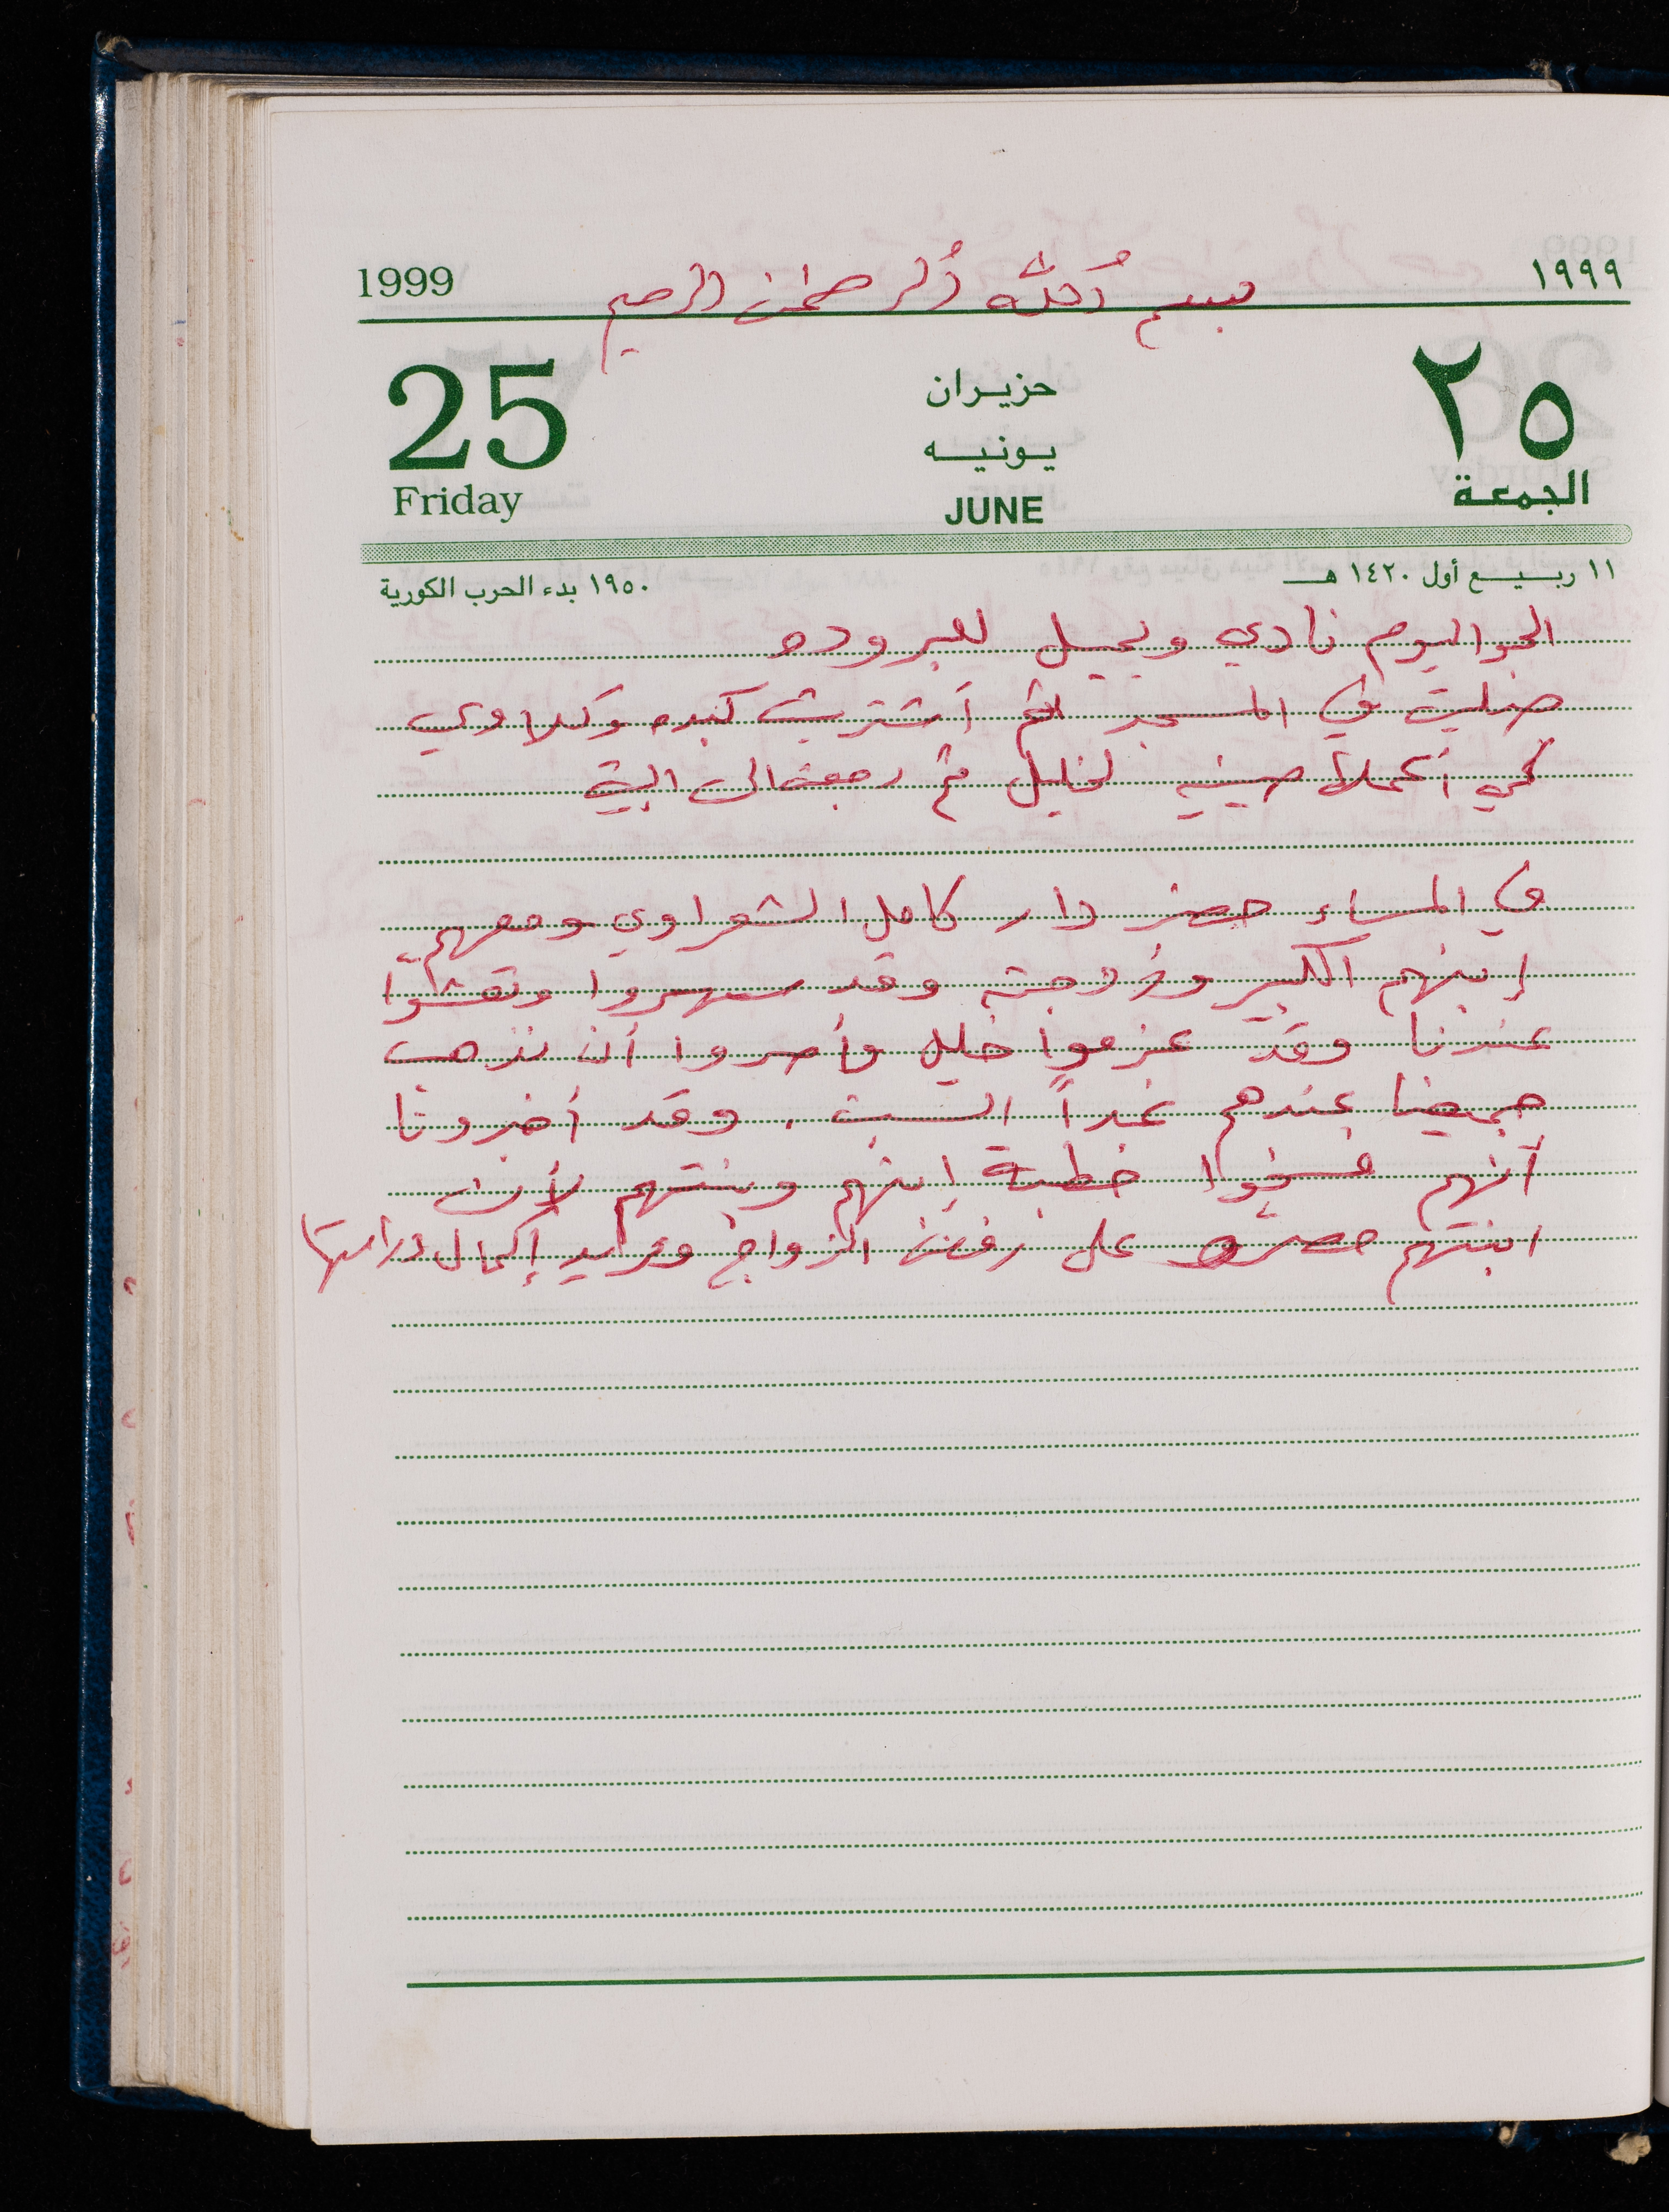 1999 بسم الله الرحمن الرحيم ١٩٩٩
25 حزيران ٢٥
يونيه
Friday JUNE الجمعة
١١ ربيع أول ١٤٢٠ هـ ١٩٥٠ بدء الحرب الكورية
الجو اليوم نادي ويميل للبروده
صليت في المسجد ثم أشتريت كبده وكلاوي
كي أعملها صينيه لخليل ثم رجعت الى البيت
في المساء حضر دار كامل الشعراوي ومعهم
إبنهم الكبير وزوجته وقد سهروا وتعشوا
عندنا وقد عزموا خليل وأصروا أن نذهب
جميعنا عندهم غداً السبت . وقد أخبرونا
أنهم فسخوا خطبة إبنهم وبنتهم لأن
ابنتهم مصره على رفض الزواج وتريد إكمال دراستها